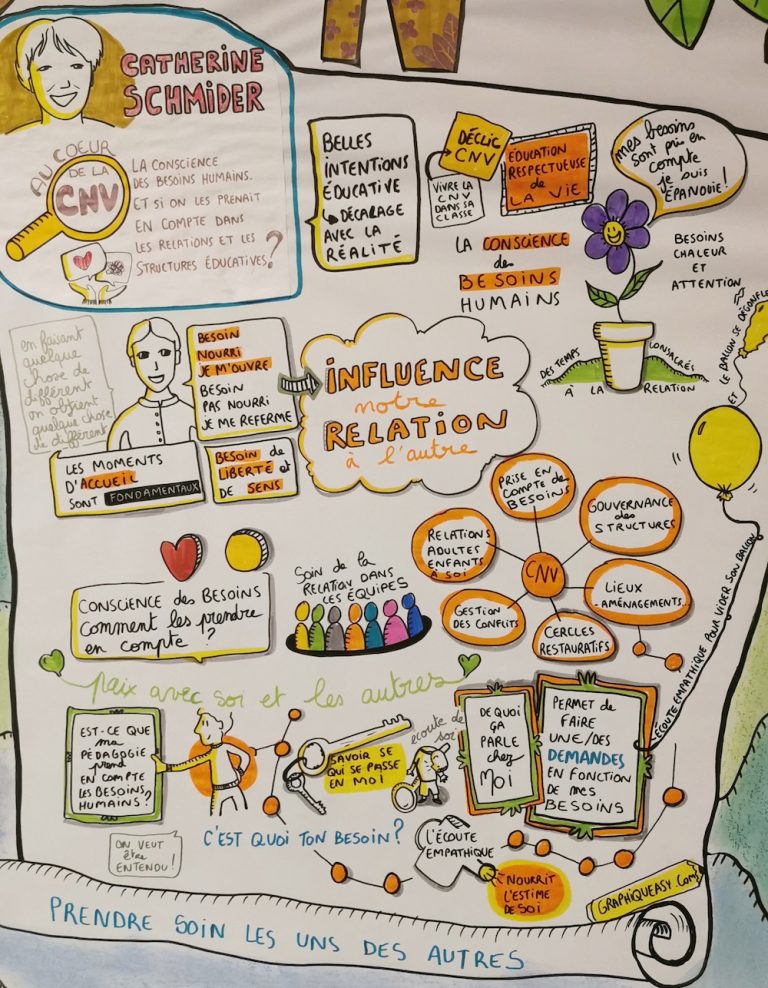 CATHERINE
SCHMIDER
AU COEUR
DE LA
CNV
LA CONSCIENCE
DES BESOINS HUMAINS.
ET SI ON LES PRENAIT
EN COMPTE DANS
LES RELATIONS ET LES
STRUCTURES ÉDUCATIVES?
BELLES
INTENTIONS
ÉDUCATIVE
↳ DÉCARAGE
AVEC LA
RÉALITÉ
DÉCLIC
CNV
VIVRE LA
CNV
DANS SA
CLASSE
ÉDUCATION
RESPECTUEUSE
de
LA VIE
LA CONSCIENCE
des
BESOINS
HUMAINS
mes besoins
sont pris en
compte
je suis
ÉPANOUIE!
BESOINS
CHALEUR
ET
ATTENTION
DES TEMPS CONSACRÉS
À LA RELATION
ET LE BALLON SE DÉGONFLE
en faisant
quelque
chose de
différent
on obtient
quelque chose
de différent
BESOIN
NOURRI
JE M'OUVRE
BESOIN
PAS NOURRI
JE ME REFERME
INFLUENCE
notre
RELATION
à l'autre
LES MOMENTS
D'ACCUEIL
SONT FONDAMENTAUX
BESOIN de
LIBERTÉ et
DE SENS
PRISE EN
COMPTE DE
BESOINS
GOUVERNANCE
des
STRUCTURES
RELATIONS
ADULTES
ENFANTS
À SOI
CNV
LIEUX
-AMÉNAGEMENTS...
GESTION
DES CONFLITS
CERCLES
RESTAURATIFS
ÉCOUTE EMPATHIQUE POUR VIDER SON BALLON
CONSCIENCE des BESOINS
Comment les prendre
en compte?
SOIN de la
RELATION DANS
LES ÉQUIPES
paix avec soi et les autres
EST-CE QUE
ma
PÉDAGOGIE
prend
EN COMPTE
LES BESOINS
HUMAINS?
SAVOIR SE
QUI SE PASSE
EN MOI
écoute de
soi
DE QUOI
ÇA
PARLE
chez
MOI
PERMET de
FAIRE
UNE/DES
DEMANDES
EN FONCTION
DE MES
BESOINS
ON VEUT
être
ENTENDU!
C'EST QUOI TON BESOIN?
L'ÉCOUTE
EMPATHIQUE
NOURRIT
L'ESTIME
DE SOI
GRAPHIQUEASY.COM
PRENDRE SOIN LES UNS DES AUTRES